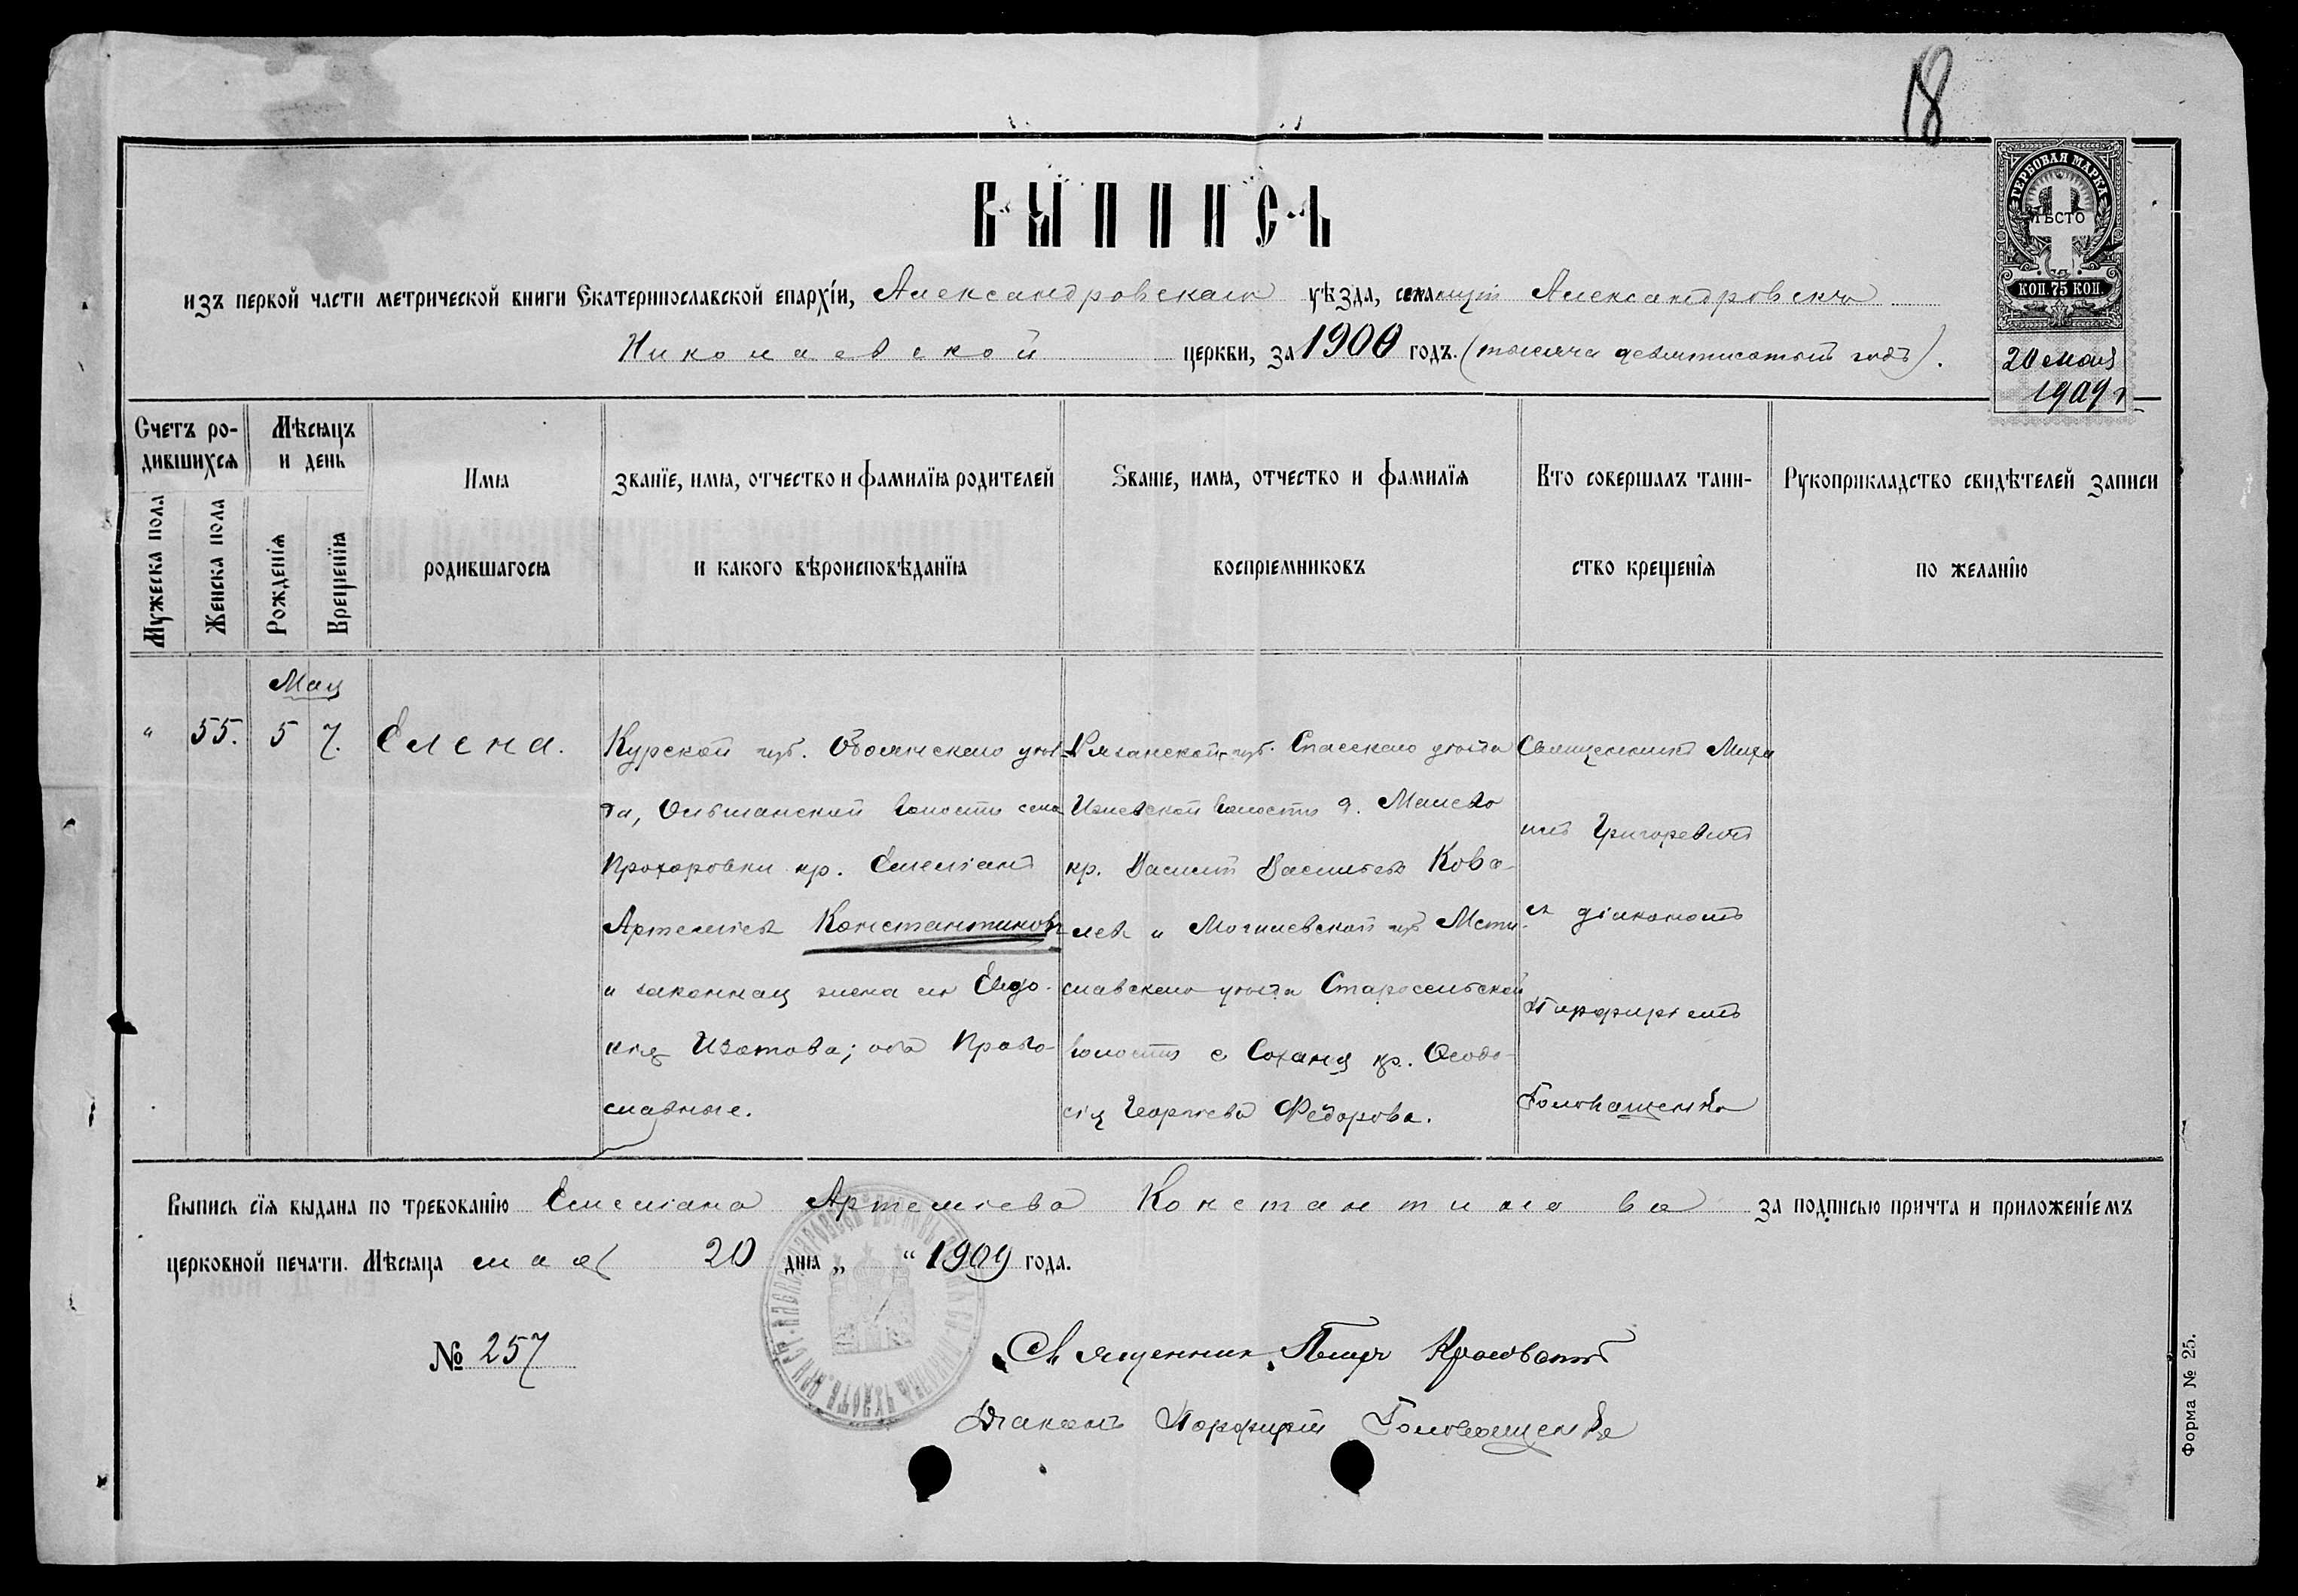 18
ГЕРБОВАЯ МАРКА
МѢСТО
КОП. 75 КОП.
20 мая
1909 г
ВЫПИСЬ
изъ первой части метрической книги Екатеринославской епархіи, Александровскаго уѣзда, станціи Александровскъ
Николаевской церкви, за 1900 годъ. (тысяча девятисотый годъ).
Счетъ ро-
дившихся
Мужеска пола
Женска пола
Мѣсяцъ
и день
Рожденія
Крещенія
Имя
родившагося
Званіе, имя, отчество и фамилія родителей
и какого вѣроисповѣданія
Званіе, имя, отчество и фамилія
воспріемниковъ
Кто совершалъ таин-
ство крещенія
Рукоприкладство свидѣтелей записи
по желанію
Май
"
55.
5
7.
Елена.
Курской губ. Обоянскаго уѣз-
да, Ольшанской волости села
Прохоровки кр. Емеліанъ
Артеміевъ Константиновъ
и законная жена его Евдо-
кія Изотова; оба Право-
славные.
Рязанской губ. Спасскаго уѣзда
Ижевской волости д.
кр. Василій Васильевъ Кова-
левъ и Могилевской губ Мсти-
славскаго уѣзда Старосельской
волости с. кр. Ѳеодо-
сія Георгіева Федорова.
Священникъ Миха
илъ Григоревичъ
съ діакономъ
Порфиріемъ
Головащенко
Выпись сія выдана по требованію Емеліана Артеміева Константинова за подписью причта и приложеніемъ
церковной печати. Мѣсяца мая 20 дня „ “ 1909 года.
№ 257
Священник Петръ
Діаконъ Порфирій Головащенко
Форма № 25.